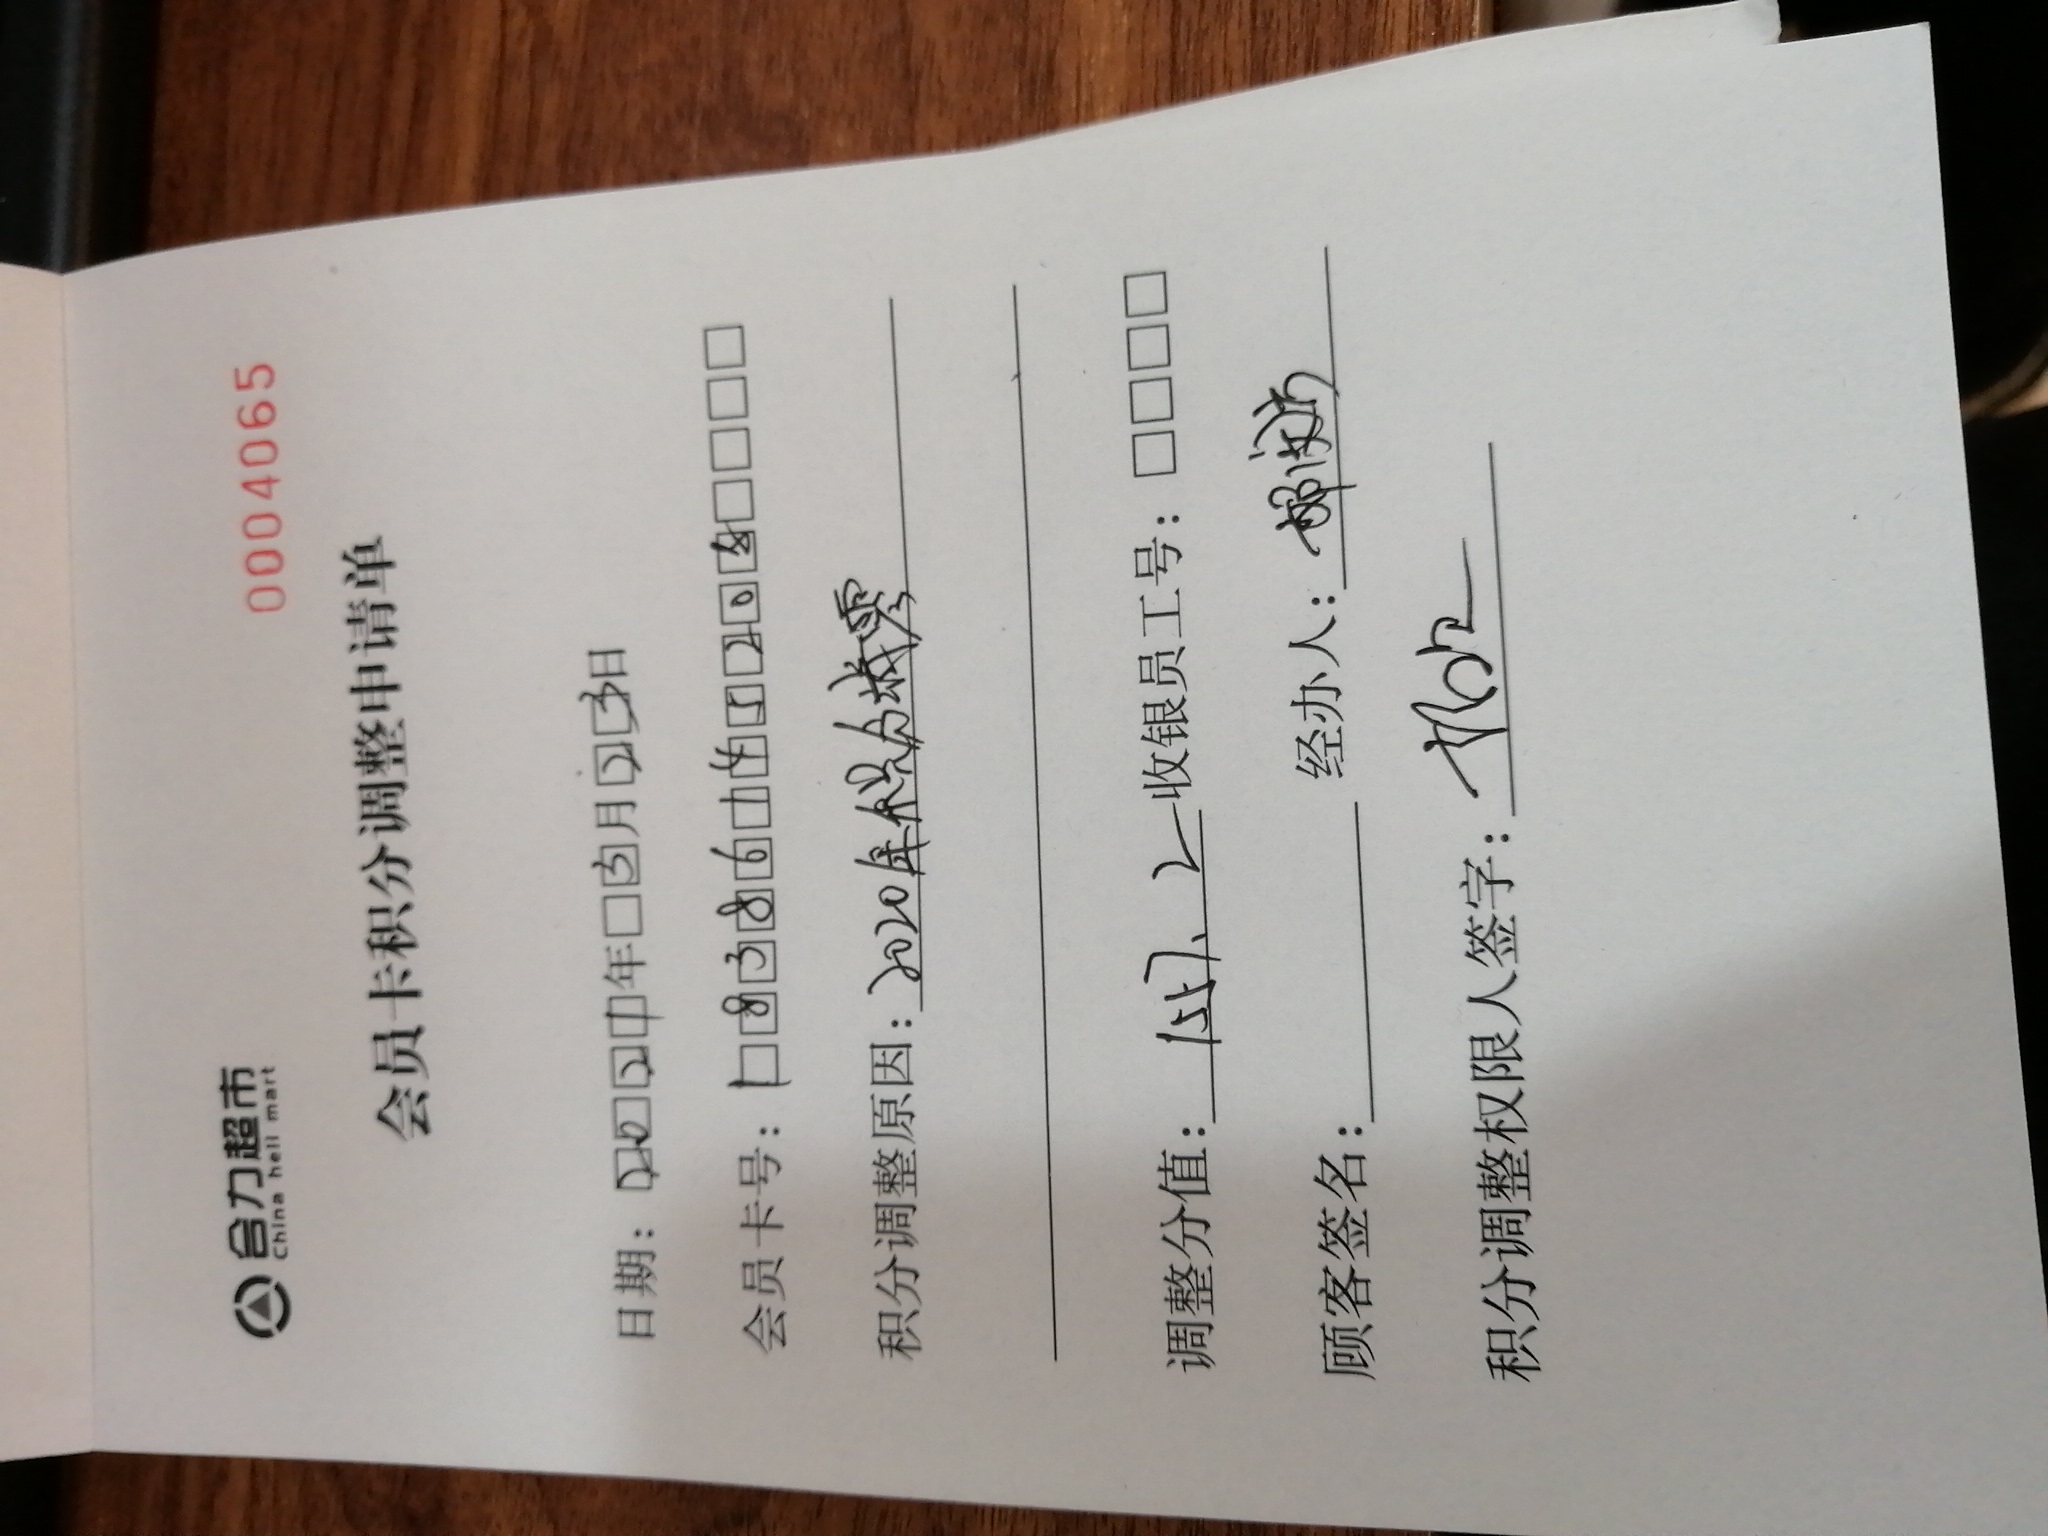 合力超市
China heli mart
0004065
会员卡积分调整申请单
日期：2021年3月23日
会员卡号：18386145204
积分调整原因：2020年积分成零
调整分值：1557.2 收银员工号：
顾客签名： 经办人：
积分调整权限人签字：